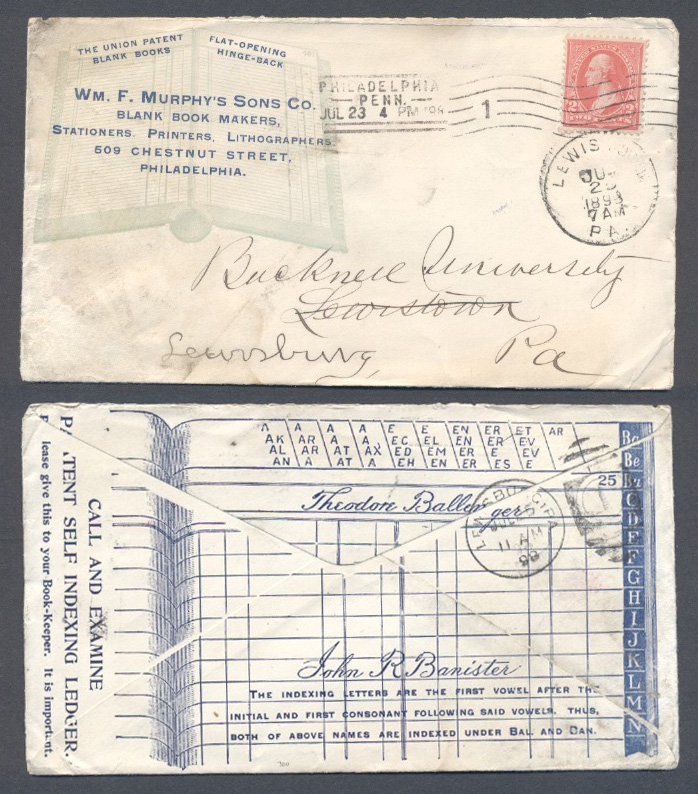 THE UNION PATENT
BLANK BOOKS
FLAT-OPENING
HINGE-BACK
WM. F. MURPHY'S SONS CO.
BLANK BOOK MAKERS,
STATIONERS. PRINTERS, LITHOGRAPHERS
509 CHESTNUT STREET,
PHILADELPHIA.
PHILADELPHIA
PENN.
JUL 23 4 PM
1
2 2
7 AM
PA.
Bucknell University
Lewistown
Lewisburg Pa
PATENT SELF INDEXING LEDGER.
CALL AND EXAMINE
Please give this to your Book-Keeper. It is important.
A A A E E EN ER ET AR
AK AR A A EC EL EN ER EV
AL AR AT AX ED EM ER E EV
AN A AT A EH EN ER ES E
25
Ba
Be
Bu
C
D
E
F
G
H
I
J
K
L
M
N
Theodon Ballenger
11 AM
John R Banister
THE INDEXING LETTERS ARE THE FIRST VOWEL AFTER THE
INITIAL AND FIRST CONSONANT FOLLOWING SAID VOWELS. THUS,
BOTH OF ABOVE NAMES ARE INDEXED UNDER BAL AND BAN.